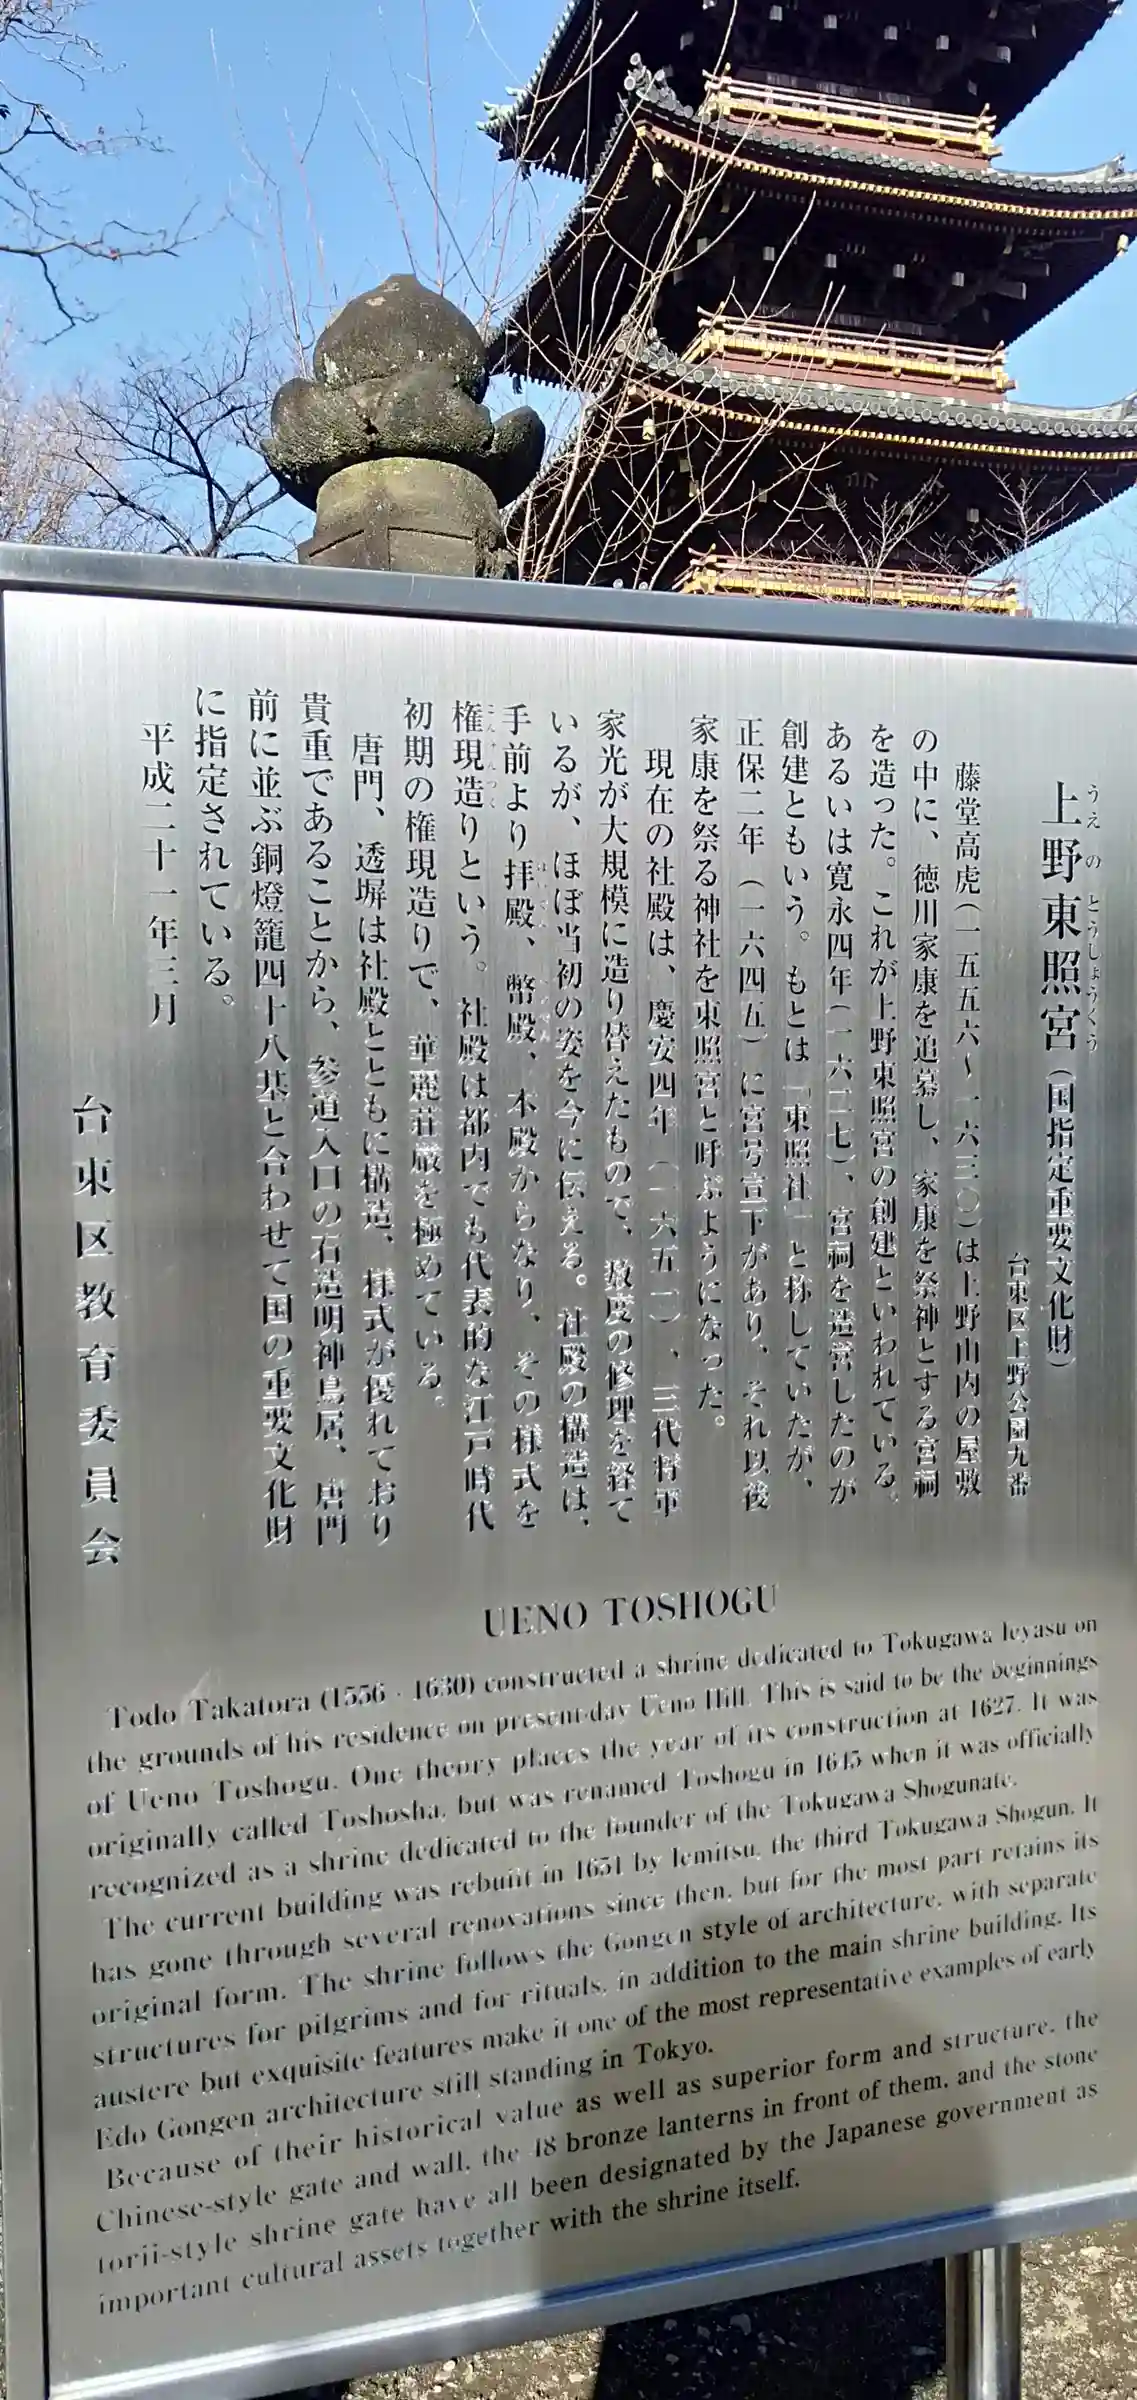 上野東照宮（国指定重要文化財）
うえの とうしょうぐう
台東区上野公園九番
藤堂高虎（一五五六〜一六三〇）は上野山内の屋敷
の中に、徳川家康を追慕し、家康を祭神とする宮祠
を造った。これが上野東照宮の創建といわれている。
あるいは寛永四年（一六二七）、宮祠を造営したのが
創建ともいう。もとは「東照社」と称していたが、
正保二年（一六四五）に宮号宣下があり、それ以後
家康を祭る神社を東照宮と呼ぶようになった。
現在の社殿は、慶安四年（一六五一）、三代将軍
家光が大規模に造り替えたもので、数度の修理を経て
いるが、ほぼ当初の姿を今に伝える。社殿の構造は、
手前より拝殿、幣殿、本殿からなり、その様式を
権現造りという。社殿は都内でも代表的な江戸時代
初期の権現造りで、華麗荘厳を極めている。
唐門、透塀は社殿とともに構造、様式が優れており
貴重であることから、参道入口の石造明神鳥居、唐門
前に並ぶ銅燈籠四十八基と合わせて国の重要文化財
に指定されている。
平成二十一年三月
台東区教育委員会
UENO TOSHOGU
Todo Takatora (1556 - 1630) constructed a shrine dedicated to Tokugawa Ieyasu on
the grounds of his residence on present-day Ueno Hill. This is said to be the beginnings
of Ueno Toshogu. One theory places the year of its construction at 1627. It was
originally called Toshosha, but was renamed Toshogu in 1645 when it was officially
recognized as a shrine dedicated to the founder of the Tokugawa Shogunate.
The current building was rebuilt in 1651 by Iemitsu, the third Tokugawa Shogun. It
has gone through several renovations since then, but for the most part retains its
original form. The shrine follows the Gongen style of architecture, with separate
structures for pilgrims and for rituals, in addition to the main shrine building. Its
austere but exquisite features make it one of the most representative examples of early
Edo Gongen architecture still standing in Tokyo.
Because of their historical value as well as superior form and structure, the
Chinese-style gate and wall, the 48 bronze lanterns in front of them, and the stone
torii-style shrine gate have all been designated by the Japanese government as
important cultural assets together with the shrine itself.